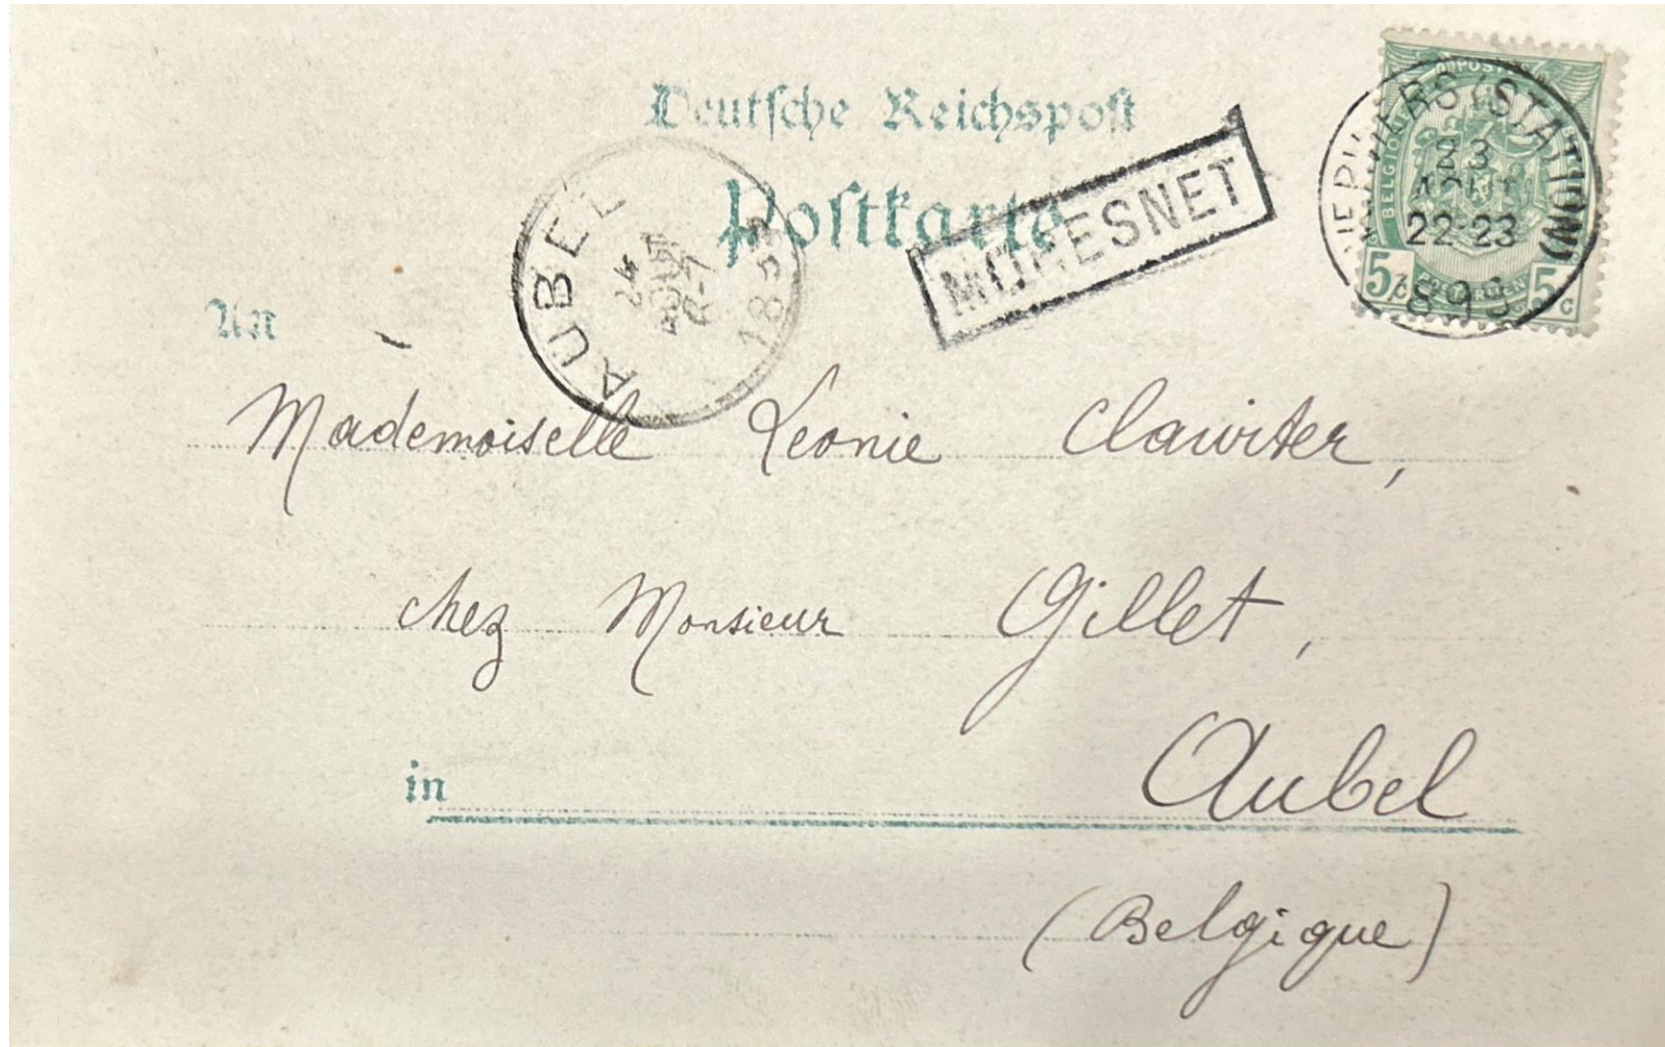 Deutsche Reichspost
Postkarte
MORESNET
VERVIERS (STATION)
23
AOUT
22-23
1899
BELGIQUE
POSTERIJEN
5 c
5 c
AUBEL
24
AOUT
6-7
1899
An
Mademoiselle Leonie Clawiter,
chez Monsieur Gillet,
in Aubel
(Belgique)